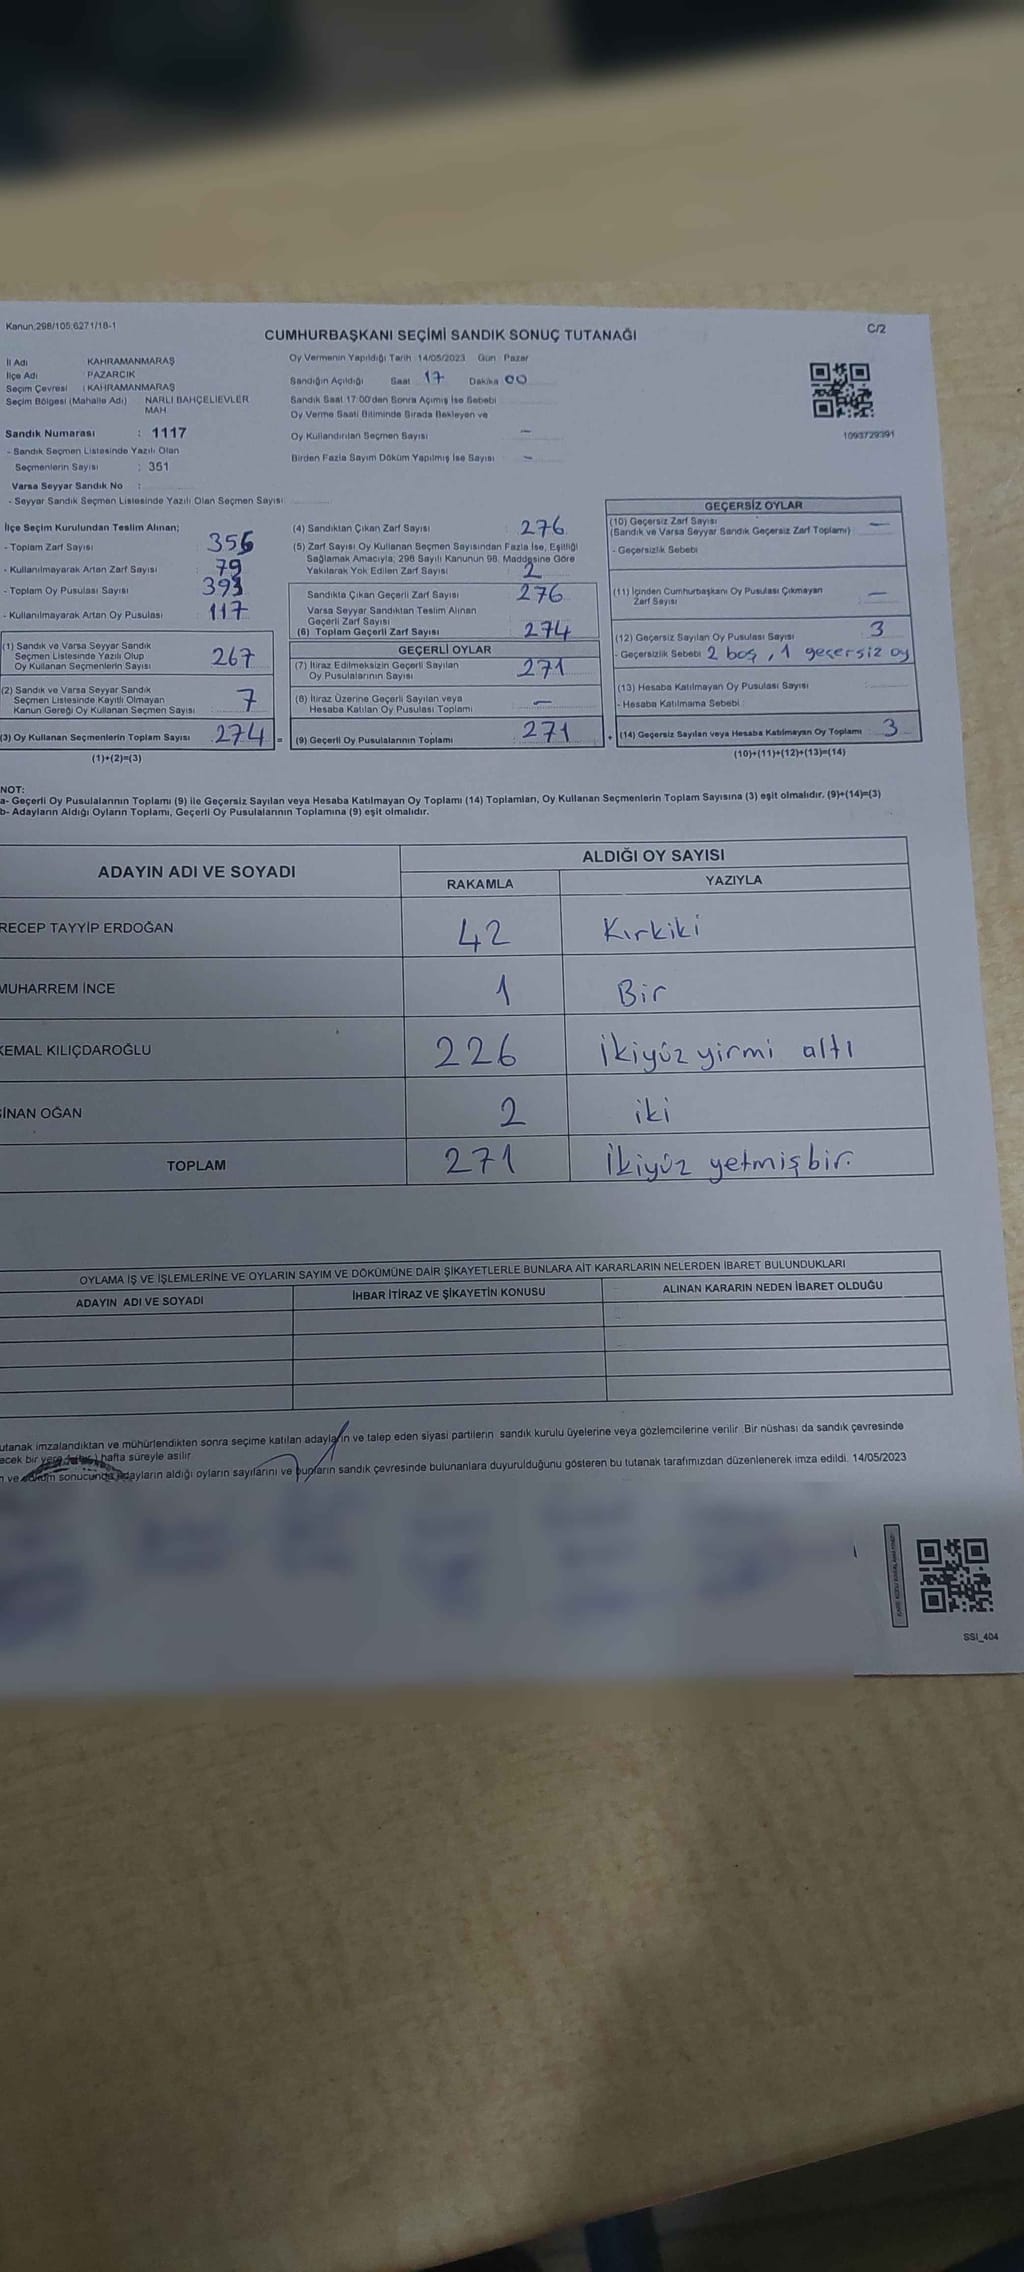 Kanun;298/105;6271/18-1
C/2
CUMHURBAŞKANI SEÇİMİ SANDIK SONUÇ TUTANAĞI
İl Adı KAHRAMANMARAŞ
İlçe Adı PAZARCIK
Seçim Çevresi : KAHRAMANMARAŞ
Seçim Bölgesi (Mahalle Adı) NARLI BAHÇELİEVLER
MAH
Sandık Numarası : 1117
- Sandık Seçmen Listesinde Yazılı Olan
Seçmenlerin Sayısı : 351
Varsa Seyyar Sandık No :
- Seyyar Sandık Seçmen Listesinde Yazılı Olan Seçmen Sayısı:
Oy Vermenin Yapıldığı Tarih 14/05/2023 Gün : Pazar
Sandığın Açıldığı Saat 17 Dakika 00
Sandık Saat 17:00'den Sonra Açımış İse Sebebi
Oy Verme Saati Bitiminde Sırada Bekleyen ve
Oy Kullandırılan Seçmen Sayısı –
Birden Fazla Sayım Döküm Yapılmış İse Sayısı –
1093729391
İlçe Seçim Kurulundan Teslim Alınan;
- Toplam Zarf Sayısı 356
- Kullanılmayarak Artan Zarf Sayısı 79
- Toplam Oy Pusulası Sayısı 393
- Kullanılmayarak Artan Oy Pusulası 117
(1) Sandık ve Varsa Seyyar Sandık
Seçmen Listesinde Yazılı Olup
Oy Kullanan Seçmenlerin Sayısı 267
(2) Sandık ve Varsa Seyyar Sandık
Seçmen Listesinde Kayıtlı Olmayan
Kanun Gereği Oy Kullanan Seçmen Sayısı 7
(3) Oy Kullanan Seçmenlerin Toplam Sayısı 274 =
(1)+(2)=(3)
(4) Sandıktan Çıkan Zarf Sayısı : 276
(5) Zarf Sayısı Oy Kullanan Seçmen Sayısından Fazla İse, Eşitliği
Sağlamak Amacıyla, 298 Sayılı Kanunun 98. Maddesine Göre
Yakılarak Yok Edilen Zarf Sayısı 2
Sandıkta Çıkan Geçerli Zarf Sayısı 276
Varsa Seyyar Sandıktan Teslim Alınan
Geçerli Zarf Sayısı
(6) Toplam Geçerli Zarf Sayısı 274
GEÇERLİ OYLAR
(7) İtiraz Edilmeksizin Geçerli Sayılan
Oy Pusulalarının Sayısı 271
(8) İtiraz Üzerine Geçerli Sayılan veya
Hesaba Katılan Oy Pusulası Toplamı –
(9) Geçerli Oy Pusulalarının Toplamı 271 +
GEÇERSİZ OYLAR
(10) Geçersiz Zarf Sayısı
(Sandık ve Varsa Seyyar Sandık Geçersiz Zarf Toplamı) –
- Geçersizlik Sebebi
(11) İçinden Cumhurbaşkanı Oy Pusulası Çıkmayan
Zarf Sayısı –
(12) Geçersiz Sayılan Oy Pusulası Sayısı 3
- Geçersizlik Sebebi 2 boş, 1 geçersiz oy
(13) Hesaba Katılmayan Oy Pusulası Sayısı
- Hesaba Katılmama Sebebi
(14) Geçersiz Sayılan veya Hesaba Katılmayan Oy Toplamı : 3
(10)+(11)+(12)+(13)=(14)
NOT:
a- Geçerli Oy Pusulalarının Toplamı (9) ile Geçersiz Sayılan veya Hesaba Katılmayan Oy Toplamı (14) Toplamları, Oy Kullanan Seçmenlerin Toplam Sayısına (3) eşit olmalıdır. (9)+(14)=(3)
b- Adayların Aldığı Oyların Toplamı, Geçerli Oy Pusulalarının Toplamına (9) eşit olmalıdır.
ADAYIN ADI VE SOYADI ALDIĞI OY SAYISI
RAKAMLA YAZIYLA
RECEP TAYYİP ERDOĞAN 42 Kırkiki
MUHARREM İNCE 1 Bir
KEMAL KILIÇDAROĞLU 226 İkiyüz yirmi altı
SİNAN OĞAN 2 iki
TOPLAM 271 İkiyüz yetmişbir.
OYLAMA İŞ VE İŞLEMLERİNE VE OYLARIN SAYIM VE DÖKÜMÜNE DAİR ŞİKAYETLERLE BUNLARA AİT KARARLARIN NELERDEN İBARET BULUNDUKLARI
ADAYIN ADI VE SOYADI İHBAR İTİRAZ VE ŞİKAYETİN KONUSU ALINAN KARARIN NEDEN İBARET OLDUĞU
utanak imzalandıktan ve mühürlendikten sonra seçime katılan adayların ve talep eden siyasi partilerin sandık kurulu üyelerine veya gözlemcilerine verilir. Bir nüshası da sandık çevresinde
ecek bir yere hafta süreyle asılır
sonucunda adayların aldığı oyların sayılarını ve bunların sandık çevresinde bulunanlara duyurulduğunu gösteren bu tutanak tarafımızdan düzenlenerek imza edildi. 14/05/2023
SSI_404